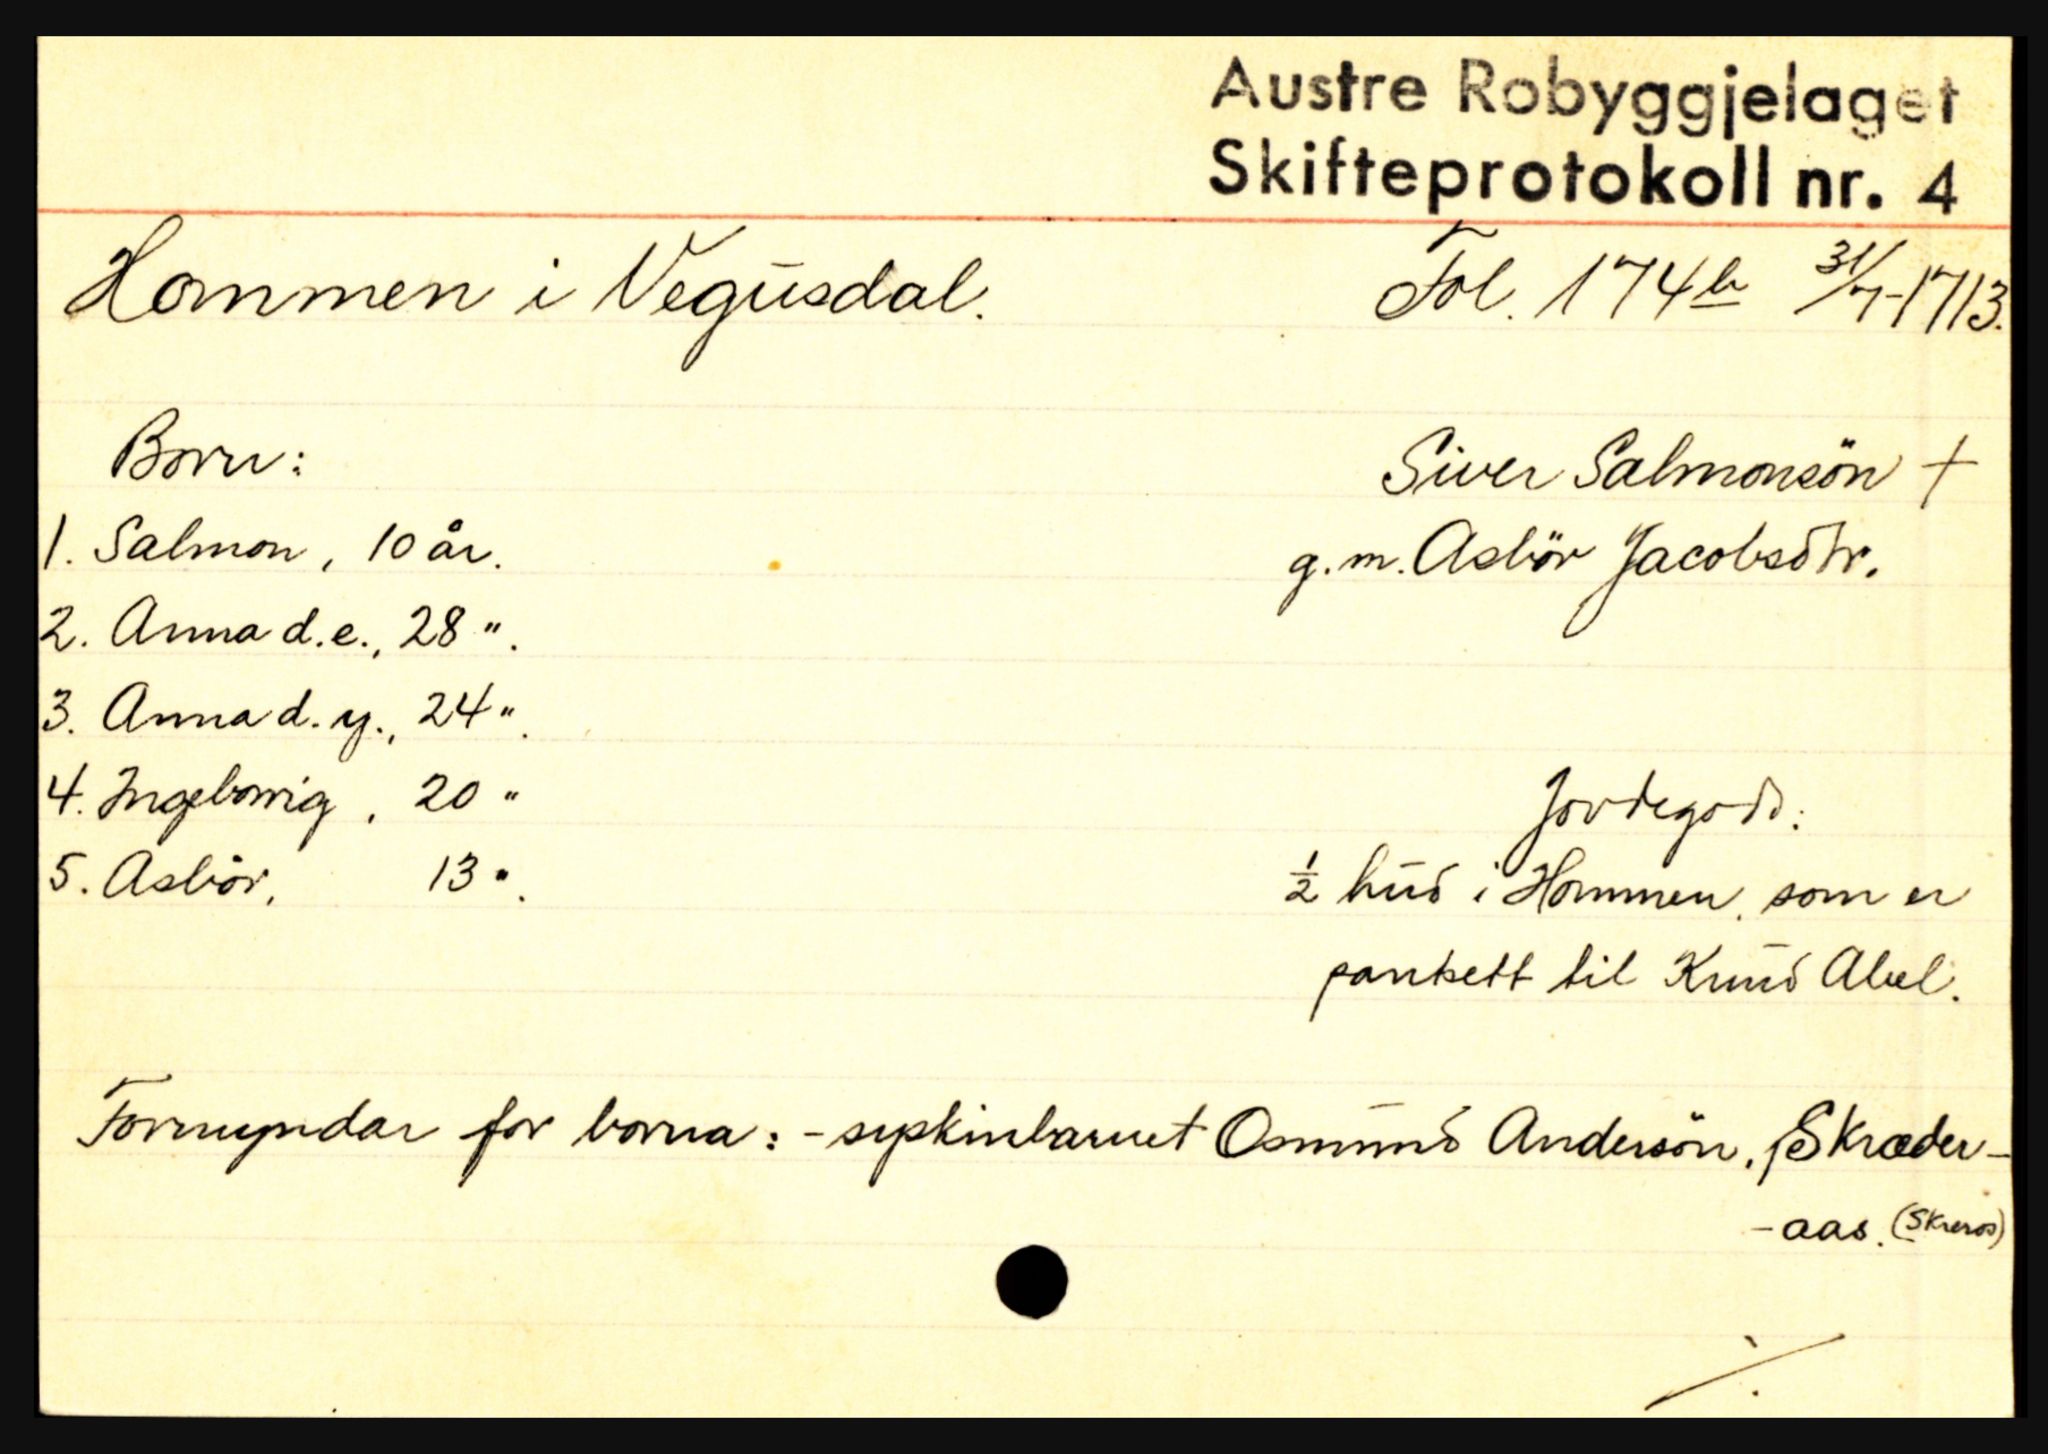 Austre Robyggjelaget
Skifteprotokoll nr. 4
Hommen i Vegusdal.
Fol. 174b 31/7-1713.
Born:
1. Salmon, 10 år.
2. Anna d.e., 28 ".
3. Anna d.y., 24 ".
4. Ingeborrig, 20 "
5. Asbör, 13 ".
Siver Salmonsön +
g.m. Asbör Jacobsdtr.
Jordegods:
1/2 hud i Hommen, som er
pantsett til Knud Abel.
Formyndar for borna: - syskinbarnet Osmund Andersön, Skræder-
- aas. (Skreros)